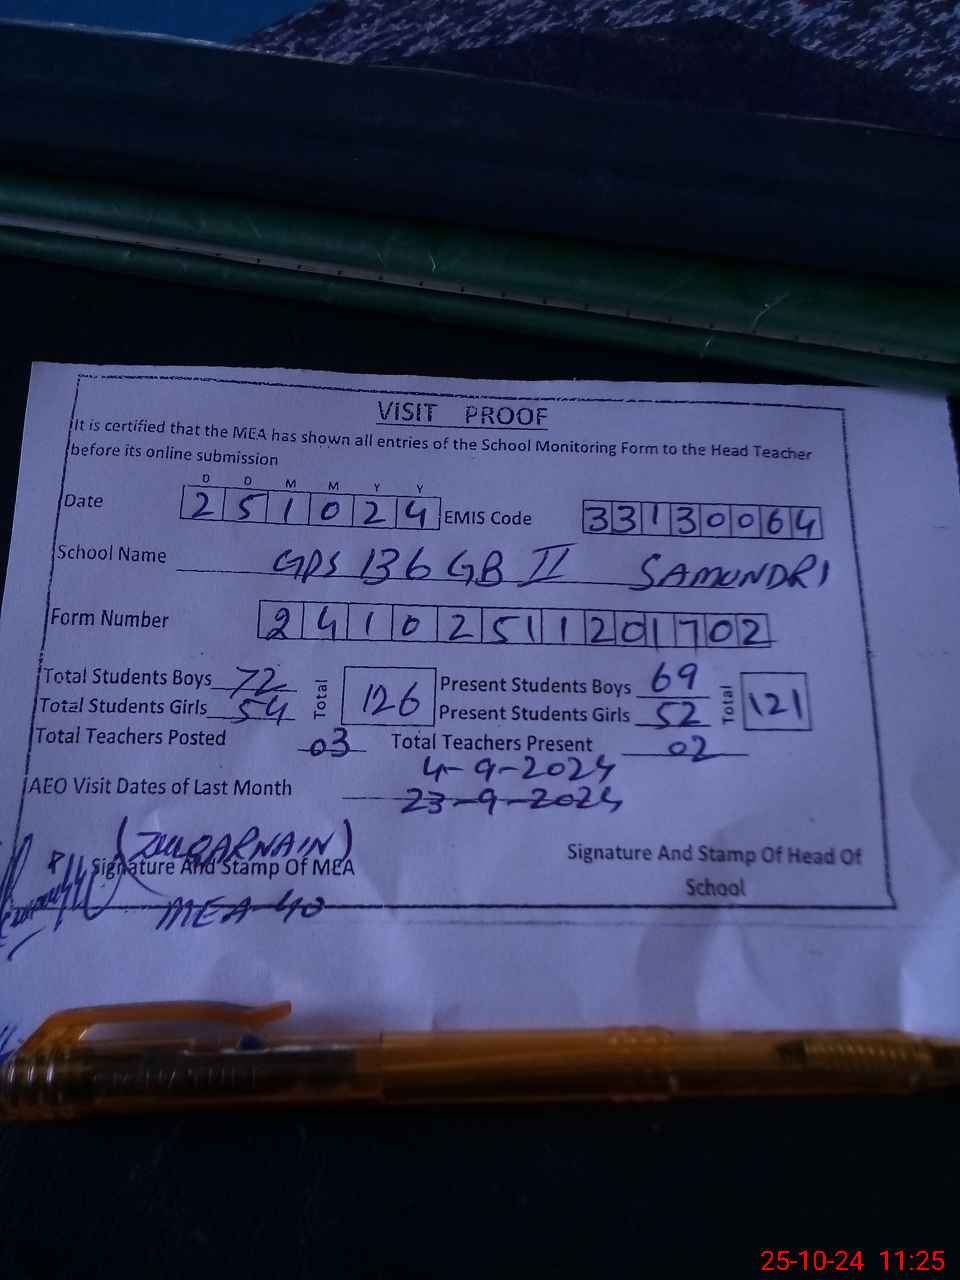 VISIT PROOF
It is certified that the MEA has shown all entries of the School Monitoring Form to the Head Teacher
before its online submission
D D M M Y Y
Date 2 5 1 0 2 4 EMIS Code 3 3 1 3 0 0 6 4
School Name GPS 136 GB II SAMUNDRI
Form Number 2 4 1 0 2 5 1 1 2 0 1 7 0 2
Total Students Boys 72 Total 126 Present Students Boys 69 Total 121
Total Students Girls 54 Present Students Girls 52
Total Teachers Posted 03 Total Teachers Present 02
4-9-2024
AEO Visit Dates of Last Month 23-9-2024
(ZULQARNAIN)
Signature And Stamp Of MEA Signature And Stamp Of Head Of
School
MEA-40
25-10-24 11:25